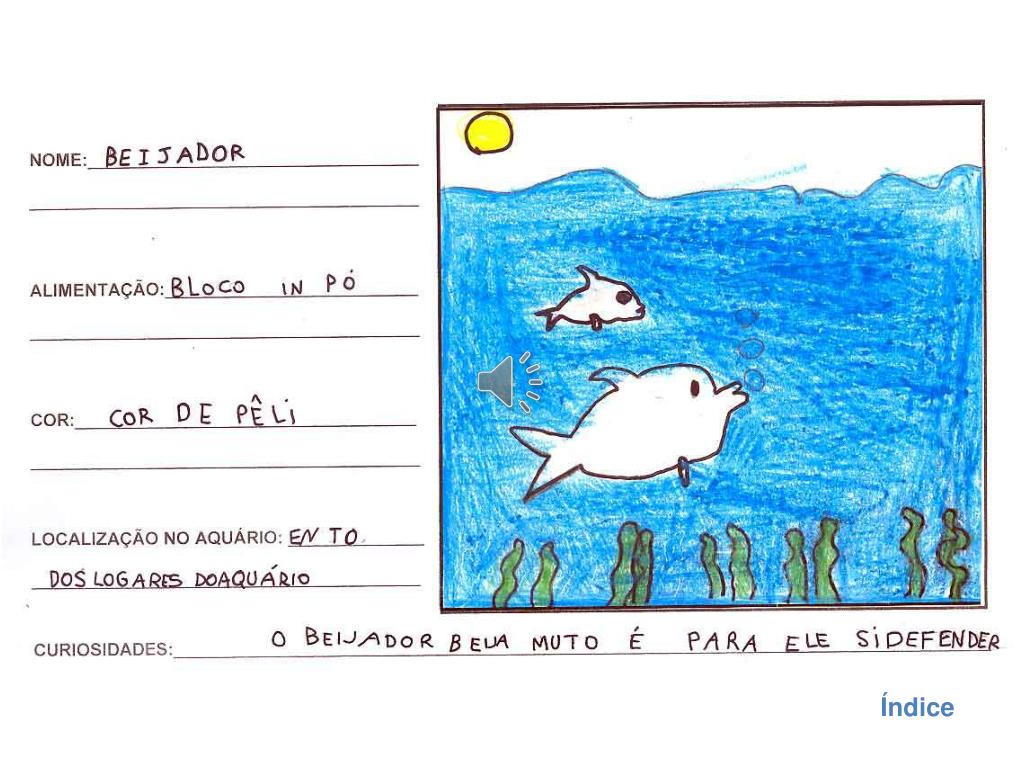 NOME: BEIJADOR
ALIMENTAÇÃO: BLOCO IN PÓ
COR: COR DE PÊLI
LOCALIZAÇÃO NO AQUÁRIO: EN TO
DOS LOGARES DOAQUÁRIO
CURIOSIDADES: O BEIJADOR BEIJA MUTO É PARA ELE SIDEFENDER
Índice